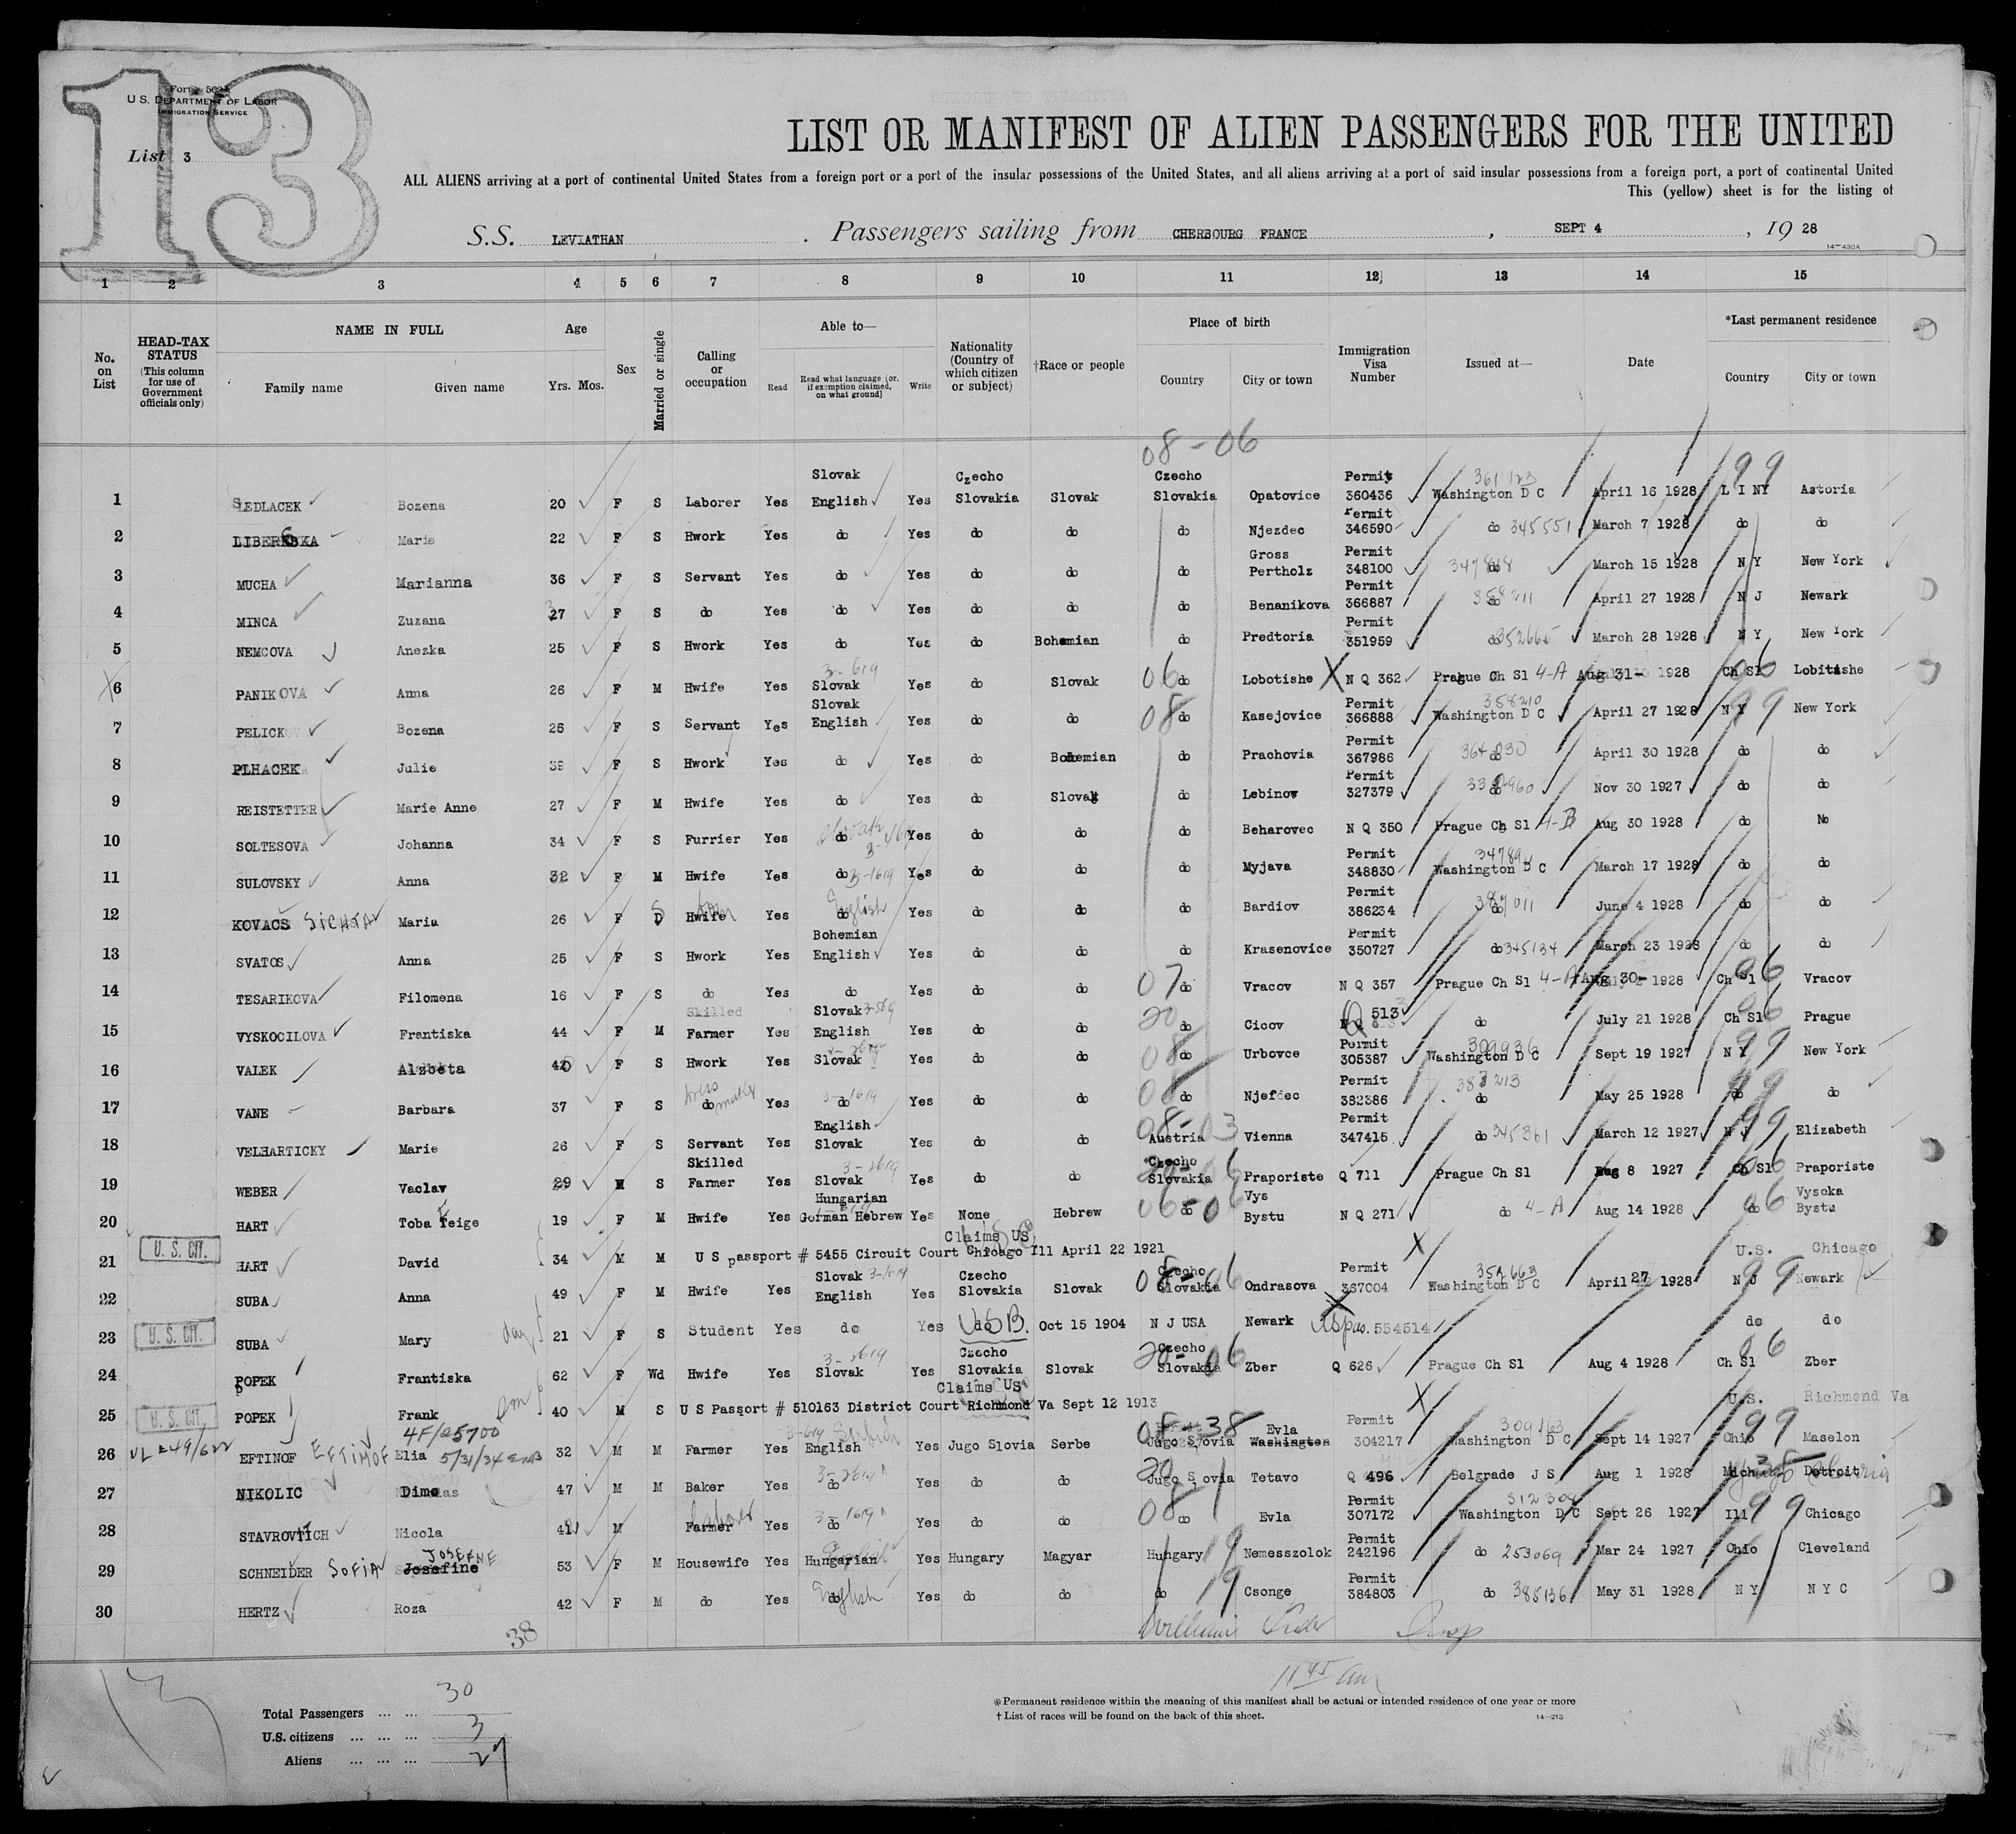 13
Form 562
U. S. DEPARTMENT OF LABOR
IMMIGRATION SERVICE
List 3
LIST OR MANIFEST OF ALIEN PASSENGERS FOR THE UNITED
ALL ALIENS arriving at a port of continental United States from a foreign port or a port of the insular possessions of the United States, and all aliens arriving at a port of said insular possessions from a foreign port, a port of continental United
This (yellow) sheet is for the listing of
S.S. LEVIATHAN . Passengers sailing from CHERBOURG FRANCE , SEPT 4 , 19 28
14—430A
1 2 3 4 5 6 7 8 9 10 11 12 13 14 15
No. on List
HEAD-TAX STATUS (This column for use of Government officials only)
NAME IN FULL Family name Given name
Age Yrs. Mos.
Sex
Married or single
Calling or occupation
Able to— Read Read what language [or, if exemption claimed, on what ground] Write
Nationality (Country of which citizen or subject)
†Race or people
Place of birth Country City or town
Immigration Visa Number
Issued at—
Date
*Last permanent residence Country City or town
08-06
1 SEDLACEK Bozena 20 F S Laborer Yes Slovak English Yes Czecho Slovakia Slovak Czecho Slovakia Opatovice Permit 360436 361123 Washington D C April 16 1928 99 L I NY Astoria
2 LIBERSKA Marie 22 F S Hwork Yes do Yes do do do Njezdec Permit 346590 do 345551 March 7 1928 do do
3 MUCHA Marianna 36 F S Servant Yes do Yes do do do Gross Pertholz Permit 348100 do March 15 1928 N Y New York
4 MINCA Zuzana 27 F S do Yes do Yes do do do Benanikova Permit 366887 do 358211 April 27 1928 N J Newark
5 NEMCOVA Anezka 25 F S Hwork Yes do Yes do Bohemian do Predtoria Permit 351959 do 352665 March 28 1928 N Y New York
6 PANIKOVA Anna 26 F M Hwife Yes 3-619 Slovak Yes do Slovak 06 do Lobotishe X N Q 362 Prague Ch Sl 4-A Aug 31- 1928 Ch Sl 06 Lobitishe
7 PELICKOV Bozena 26 F S Servant Yes Slovak English Yes do do 08 do Kasejovice Permit 366888 358210 Washington D C April 27 1928 N Y 99 New York
8 PLHACEK Julie 39 F S Hwork Yes do Yes do Bohemian do Prachovia Permit 367986 do April 30 1928 do do
9 REISTETTER Marie Anne 27 F M Hwife Yes do Yes do Slovak do Lebinow Permit 327379 do Nov 30 1927 do do
10 SOLTESOVA Johanna 34 F S Furrier Yes do Yes do do do Beharovec N Q 350 Prague Ch Sl 4-B Aug 30 1928 do No
11 SULOVSKY Anna 32 F M Hwife Yes do 3-1619 Yes do do do Myjava Permit 348830 Washington D C March 17 1928 do do
12 KOVACS SICHTA Maria 26 F D S Hwife Yes do English Yes do do do Bardiov Permit 386234 do 387011 June 4 1928 do do
13 SVATOS Anna 25 F S Hwork Yes Bohemian English Yes do do do Krasenovice Permit 350727 do 345134 March 23 1928 do do
14 TESARIKOVA Filomena 16 F S do Yes do Yes do do 07 do Vracov N Q 357 Prague Ch Sl 4-A Aug 30- 1928 Ch Sl 06 Vracov
15 VYSKOCILOVA Frantiska 44 F M Skilled Farmer Yes Slovak English Yes do do 20 do Cicov Q 513 do July 21 1928 Ch Sl 06 Prague
16 VALEK Alzbeta 42 F S Hwork Yes Slovak Yes do do 08 do Urbovce Permit 305387 309936 Washington D C Sept 19 1927 N Y 99 New York
17 VANE Barbara 37 F S do Yes 3-1619 do Yes do do 08 do Njefdec Permit 382386 383213 do May 25 1928 99 do do
18 VELHARTICKY Marie 26 F S Servant Yes English Slovak Yes do do 08-03 Austria Vienna Permit 347415 do 345361 March 12 1927 N J 99 Elizabeth
19 WEBER Vaclav 29 M S Skilled Farmer Yes 3-2619 Slovak Yes do do 20-06 Czecho Slovakia Praporiste Q 711 Prague Ch Sl Aug 8 1927 Ch Sl 06 Praporiste
20 HART Toba Feige 19 F M Hwife Yes Hungarian German Hebrew Yes None Hebrew 06-06 do Vys Bystu N Q 271 do 4-A Aug 14 1928 do 06 Vysoka Bystu
U. S. CIT.
21 HART David 34 M M U S passport # 5455 Circuit Court Chicago Ill April 22 1921 Claims US X U.S. Chicago
22 SUBA Anna 49 F M Hwife Yes Slovak 3-1619 English Yes Czecho Slovakia Slovak 08-06 Czecho Slovakia Ondrasova Permit 367004 Washington D C April 27 1928 N J 99 Newark
U. S. CIT.
23 SUBA Mary 21 F S Student Yes do Yes do USB. Oct 15 1904 N J USA Newark USpas. 554514 do do
24 POPEK Frantiska 62 F Wd Hwife Yes 3-2619 Slovak Yes Czecho Slovakia Slovak 20-06 Czecho Slovakia Zber Q 626 Prague Ch Sl Aug 4 1928 Ch Sl 06 Zber
U. S. CIT.
25 POPEK Frank 40 M S U S Passort # 510163 District Court Richmond Va Sept 12 1913 Claims US X U.S. Richmond Va
4F/25700
26 EFTINOF EFTIMOF Elia 5/31/34 32 M M Farmer Yes English Yes Jugo Slovia Serbe 08-38 Jugo Slovia Evla Washington Permit 304217 309163 Washington D C Sept 14 1927 Ohio 99 Maselon
27 NIKOLIC Dimo 47 M M Baker Yes 3-2619 do Yes do do 20 Jugo Slovia Tetavo Q 496 Belgrade J S Aug 1 1928 Mich Detroit
28 STAVROVTICH Nicola 41 M Farmer Laborer Yes 3-1619 do Yes do do 08 do Evla Permit 307172 Washington D C Sept 26 1927 Ill 99 Chicago
29 SCHNEIDER SOFIA Josefine JOSEFNE 53 F M Housewife Yes Hungarian Yes Hungary Magyar Hungary 19 Nemesszolok Permit 242196 do 253069 Mar 24 1927 Ohio Cleveland
30 HERTZ Roza 42 F M do Yes do English Yes do do do 19 Csonge Permit 384803 do 385136 May 31 1928 N Y N Y C
38
11 45 am
Total Passengers ... ... 30
U.S. citizens ... ... ... 3
Aliens ... ... ... 27
*Permanent residence within the meaning of this manifest shall be actual or intended residence of one year or more
†List of races will be found on the back of this sheet.
14—213
13